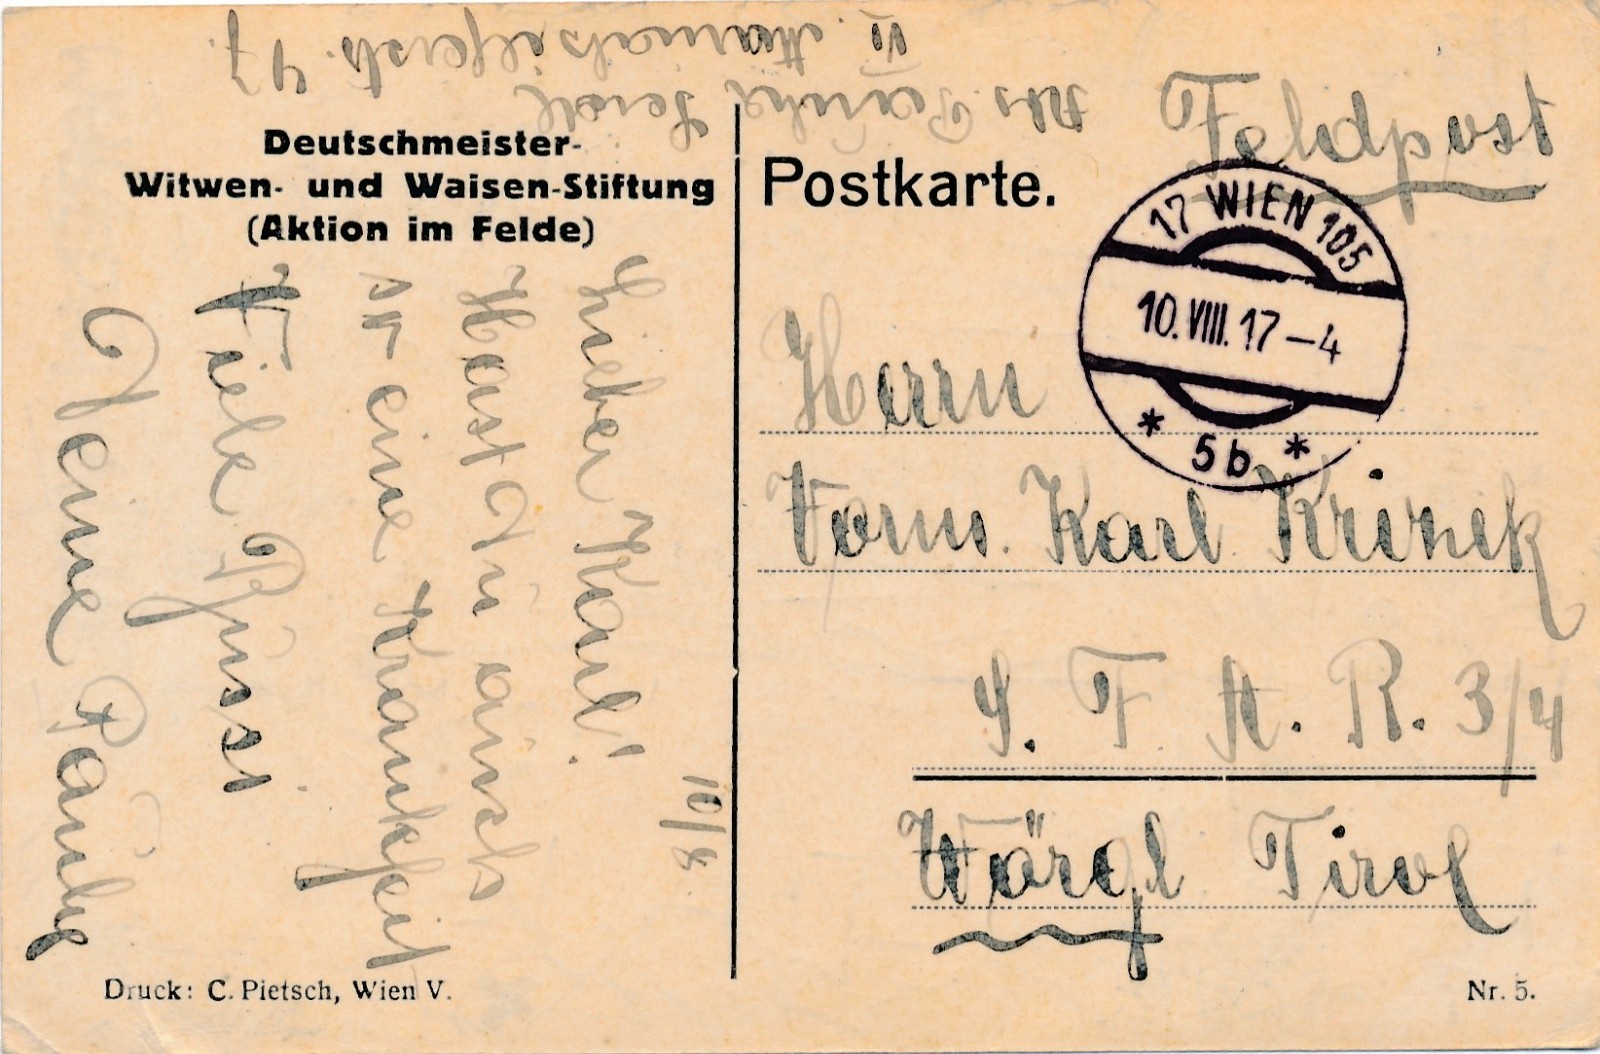 Feldpost
Abs. Paula Seidl
VI. Mariahilferstr. 47.
Deutschmeister-
Witwen- und Waisen-Stiftung
(Aktion im Felde)
Postkarte.
17 WIEN 105
10.VIII.17-4
* 5b *
Herrn
Vorm. Karl Kriznek
S. F. A. R. 3/4
Wörgl Tirol
10/8.
Lieber Karl!
Hast Du auch
so eine Krankheit
Viele Grüsse
Deine Paula
Druck: C. Pietsch, Wien V.
Nr. 5.